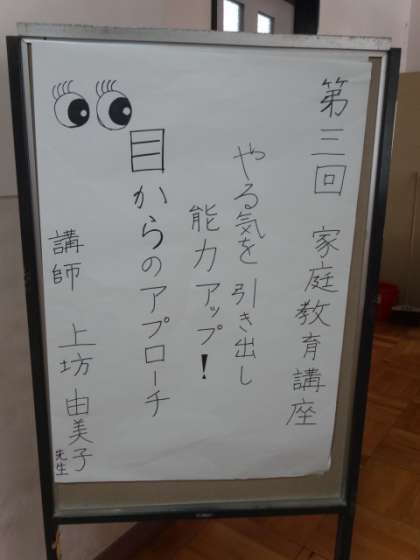 第三回 家庭教育講座
やる気を引き出し
能力アップ!
目からのアプローチ
講師 上坊由美子先生